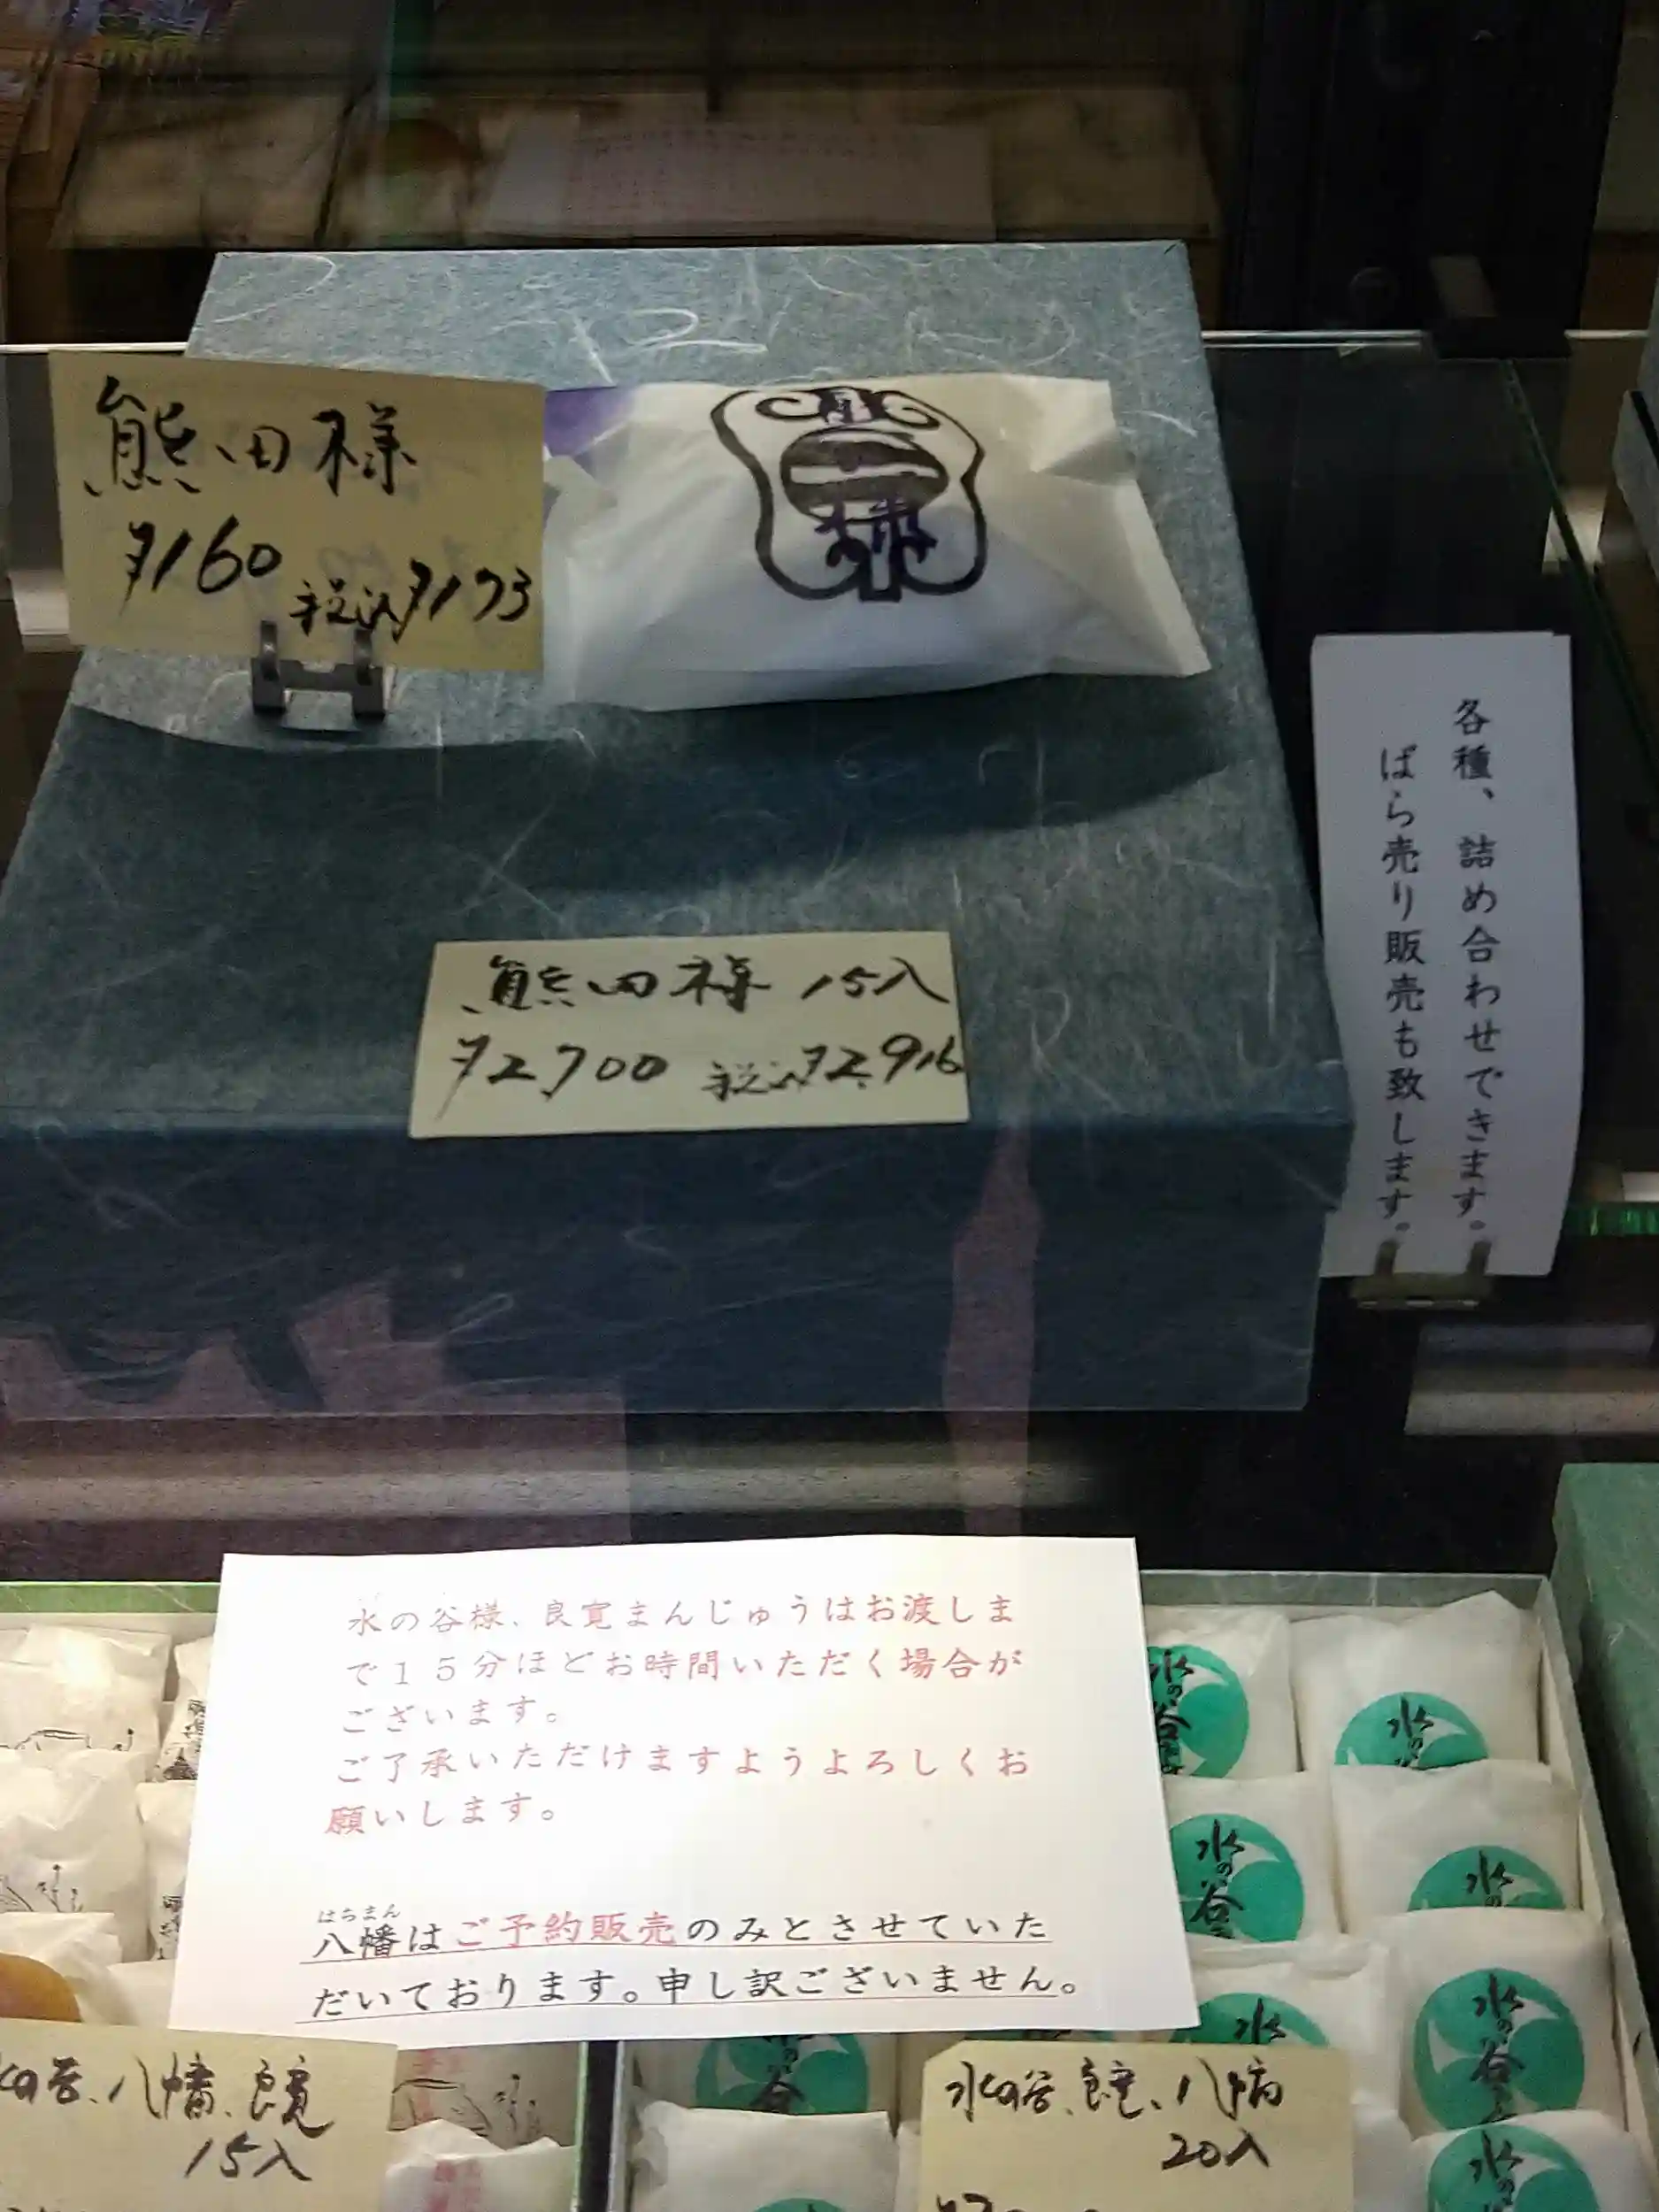 熊田様
¥160 税込¥173
熊田様 15入
¥2,700 税込¥2,916
各種、詰め合わせできます。
ばら売り販売も致します。
水の谷様、良寛まんじゅうはお渡しま
で15分ほどお時間いただく場合が
ございます。
ご了承いただけますようよろしくお
願いします。
はちまん
八幡はご予約販売のみとさせていた
だいております。申し訳ございません。
水の谷
水の
水の谷
水の
水の谷
水
水の谷
水の谷、八幡、良寛
15入
水の谷、良寛、八幡
20入